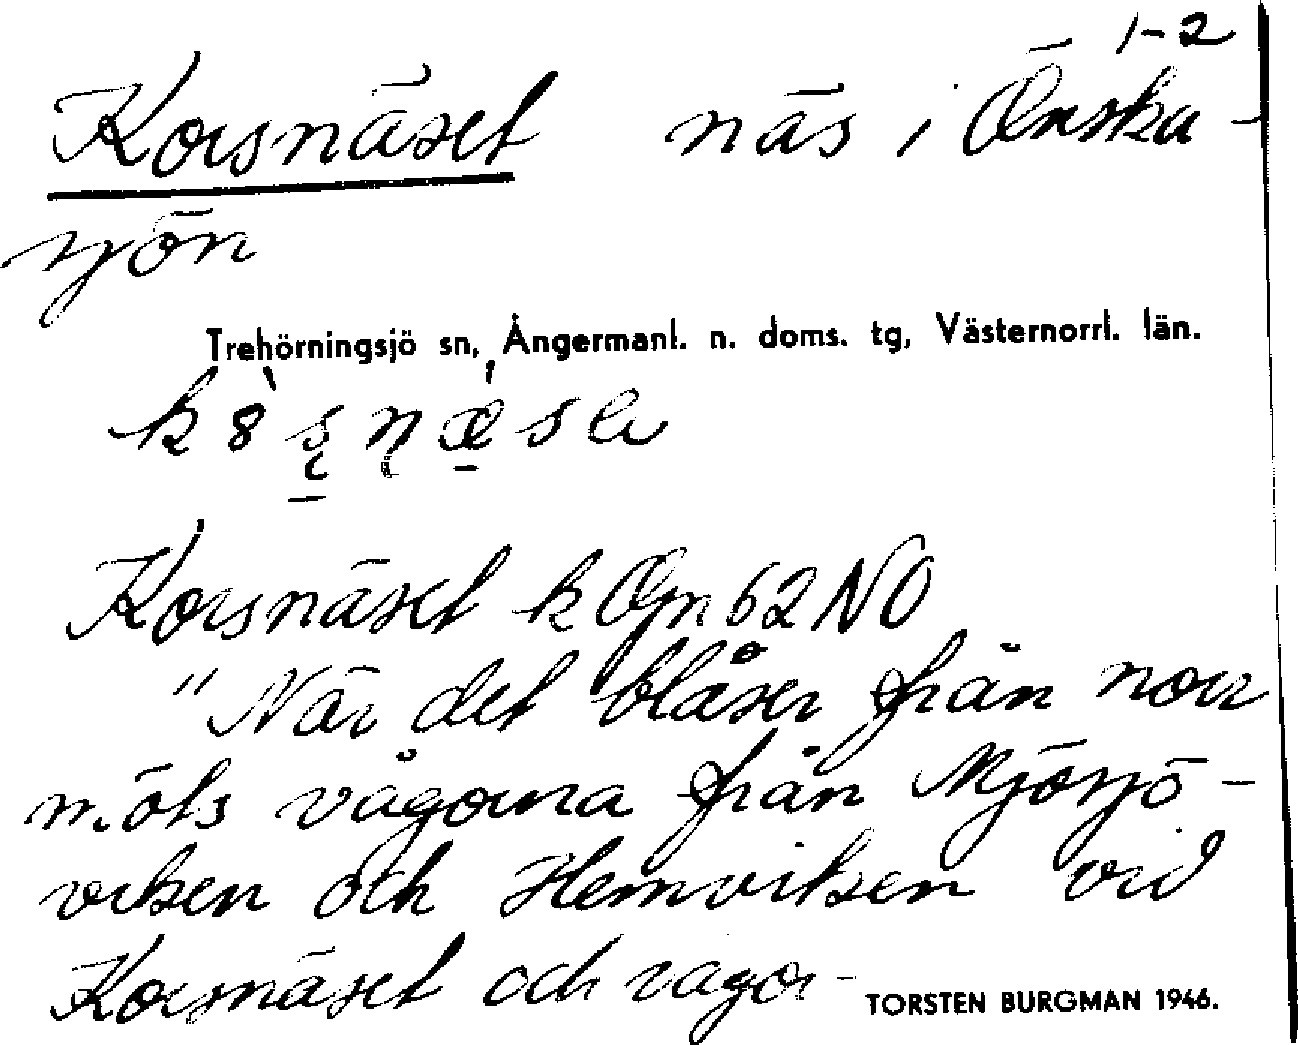 1-2
Korsnäset näs i Önska-
sjön
Trehörningsjö sn, Ångermanl. n. doms. tg, Västernorrl. län.
Korsnäset k Ögn 62 NO
"När det blåser från norr
möts vågorna från Mjösjö-
viken och Hemviken vid
Korsnäset och vågor-
TORSTEN BURGMAN 1946.